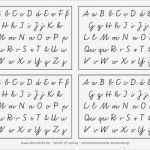 B b C c D d E e
G g H h I i J j K k
M m N n O o P p
R r S s T t U u
W w X x Y y Z z
A a B b C c D d E e
F f G g H h I i J j K k
L l M m N n O o P p
Qu qu R r S s T t U u
V v W w X x Y y Z z
B b C c D d E e
G g H h I i J j K k
M m N n O o P p
R r S s T t U u
W w X x Y y Z z
A a B b C c D d E e
F f G g H h I i J j K k
L l M m N n O o P p
Qu qu R r S s T t U u
V v W w X x Y y Z z